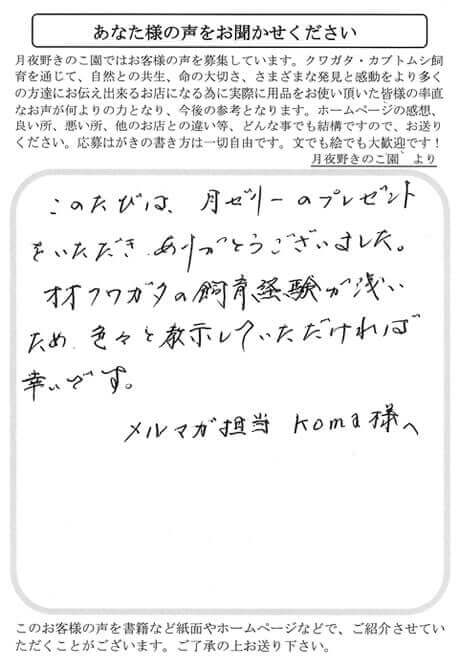 あなた様の声をお聞かせください
月夜野きのこ園ではお客様の声を募集しています。クワガタ・カブトムシ飼
育を通じて、自然との共生、命の大切さ、さまざまな発見と感動をより多く
の方達にお伝え出来るお店になる為に実際に用品をお使い頂いた皆様の率直
なお声が何よりの力となり、今後の参考となります。ホームページの感想、
良い所、悪い所、他のお店との違い等、どんな事でも結構ですので、お送り
ください。応募はがきの書き方は一切自由です。文でも絵でも大歓迎です！
月夜野きのこ園 より
このたびは、月ゼリーのプレゼント
をいただき ありがとうございました。
オオクワガタの飼育経験が浅い
ため、色々と教示していただければ
幸いです。
メルマガ担当 Koma様へ
このお客様の声を書籍など紙面やホームページなどで、ご紹介させてい
ただくことがございます。ご了承の上お送り下さい。